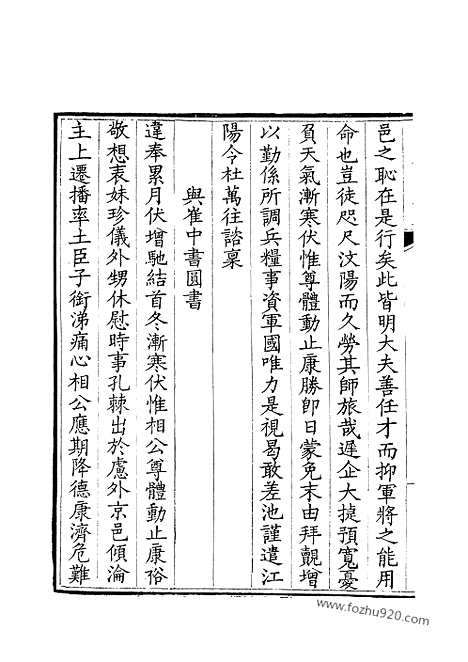 邑之恥在是行矣此皆明大夫善任才而抑軍將之能用
命也豈徒咫尺汶陽而久勞其師旅哉遲企大捷預寬憂
負天氣漸寒伏惟尊體動止康勝卽日蒙免末由拜覿增
以勤係所調兵糧事資軍國唯力是視曷敢差池謹遣江
陽令杜萬往諮稟
與崔中書圓書
違奉累月伏增馳結首冬漸寒伏惟相公尊體動止康裕
敬想裴妹珍儀外甥休慰時事孔棘出於慮外京邑傾淪
主上遷播率土臣子銜涕痛心相公應期降德康濟危難
www.fozhu920.com